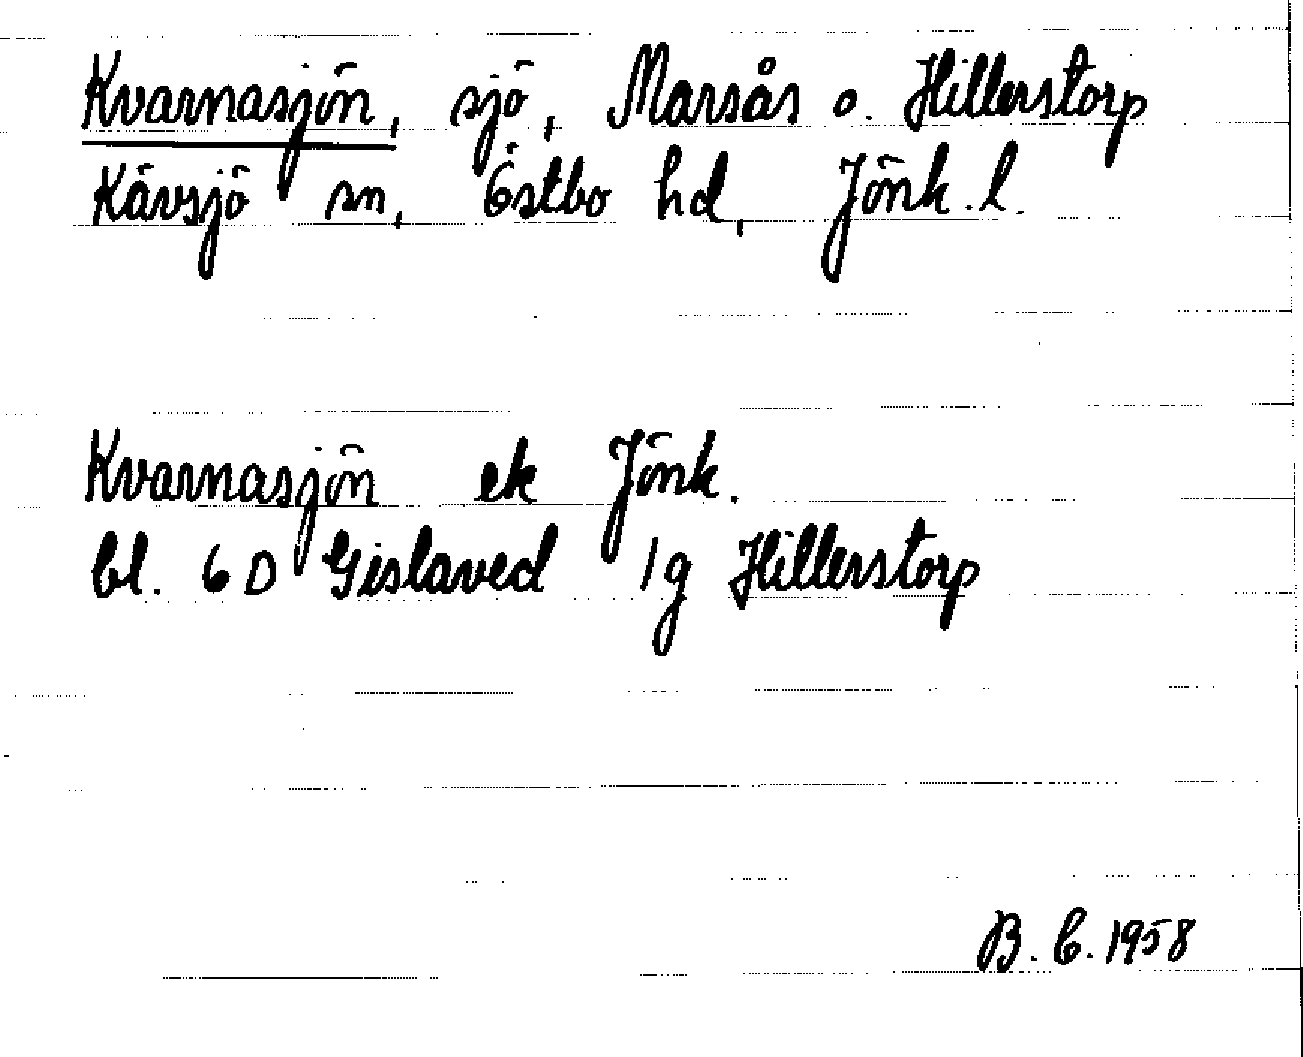 Kvarnasjön, sjö, Marsås o. Hillerstorp
Kävsjö sn, Östbo hd, Jönk. l.
Kvarnasjön ek Jönk.
bl. 6 D Gislaved 1g Hillerstorp
B. C. 1958